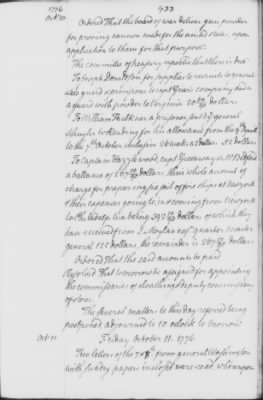 1776 933
Oct 10 Ordered That the board of war deliver gun powder
for proving cannon made for the united states, upon
application to them for that purpose.
The committee of treasury reported that there is due
To Joseph Donaldson for supplies to recruits to general
guard & provisions to capt company had on
a guard with powder to Virginia 20 dollars
To William Faulkner a prisoner sent by general
Schuyler to Reading for his allowance from the
to the 7th October inclusive 26 weeks 52 dollars
To captain Hazlewood, capt & Mr
a ballance of 267 dollars, their whole account of
charge for preparing six fire ships at New york
& their expences going to, and coming from New york
to Philadelphia being 392 dollars of which they
have received from S. Moylan esqr quarter master
general 125 dollars, the remainder is 267 dollars
Ordered That the said accounts be paid
Resolved That tomorrow be assigned for appointing
the commissaries of cloathing & deputy commissary
of stores.
The several matters to this day referred being
postponed adjourned to 10 o'clock to morrow
Oct 11 Friday October 11. 1776
Two letters of the 7 & 8th from general Washington
with sundry papers inclosed were read, whereupon